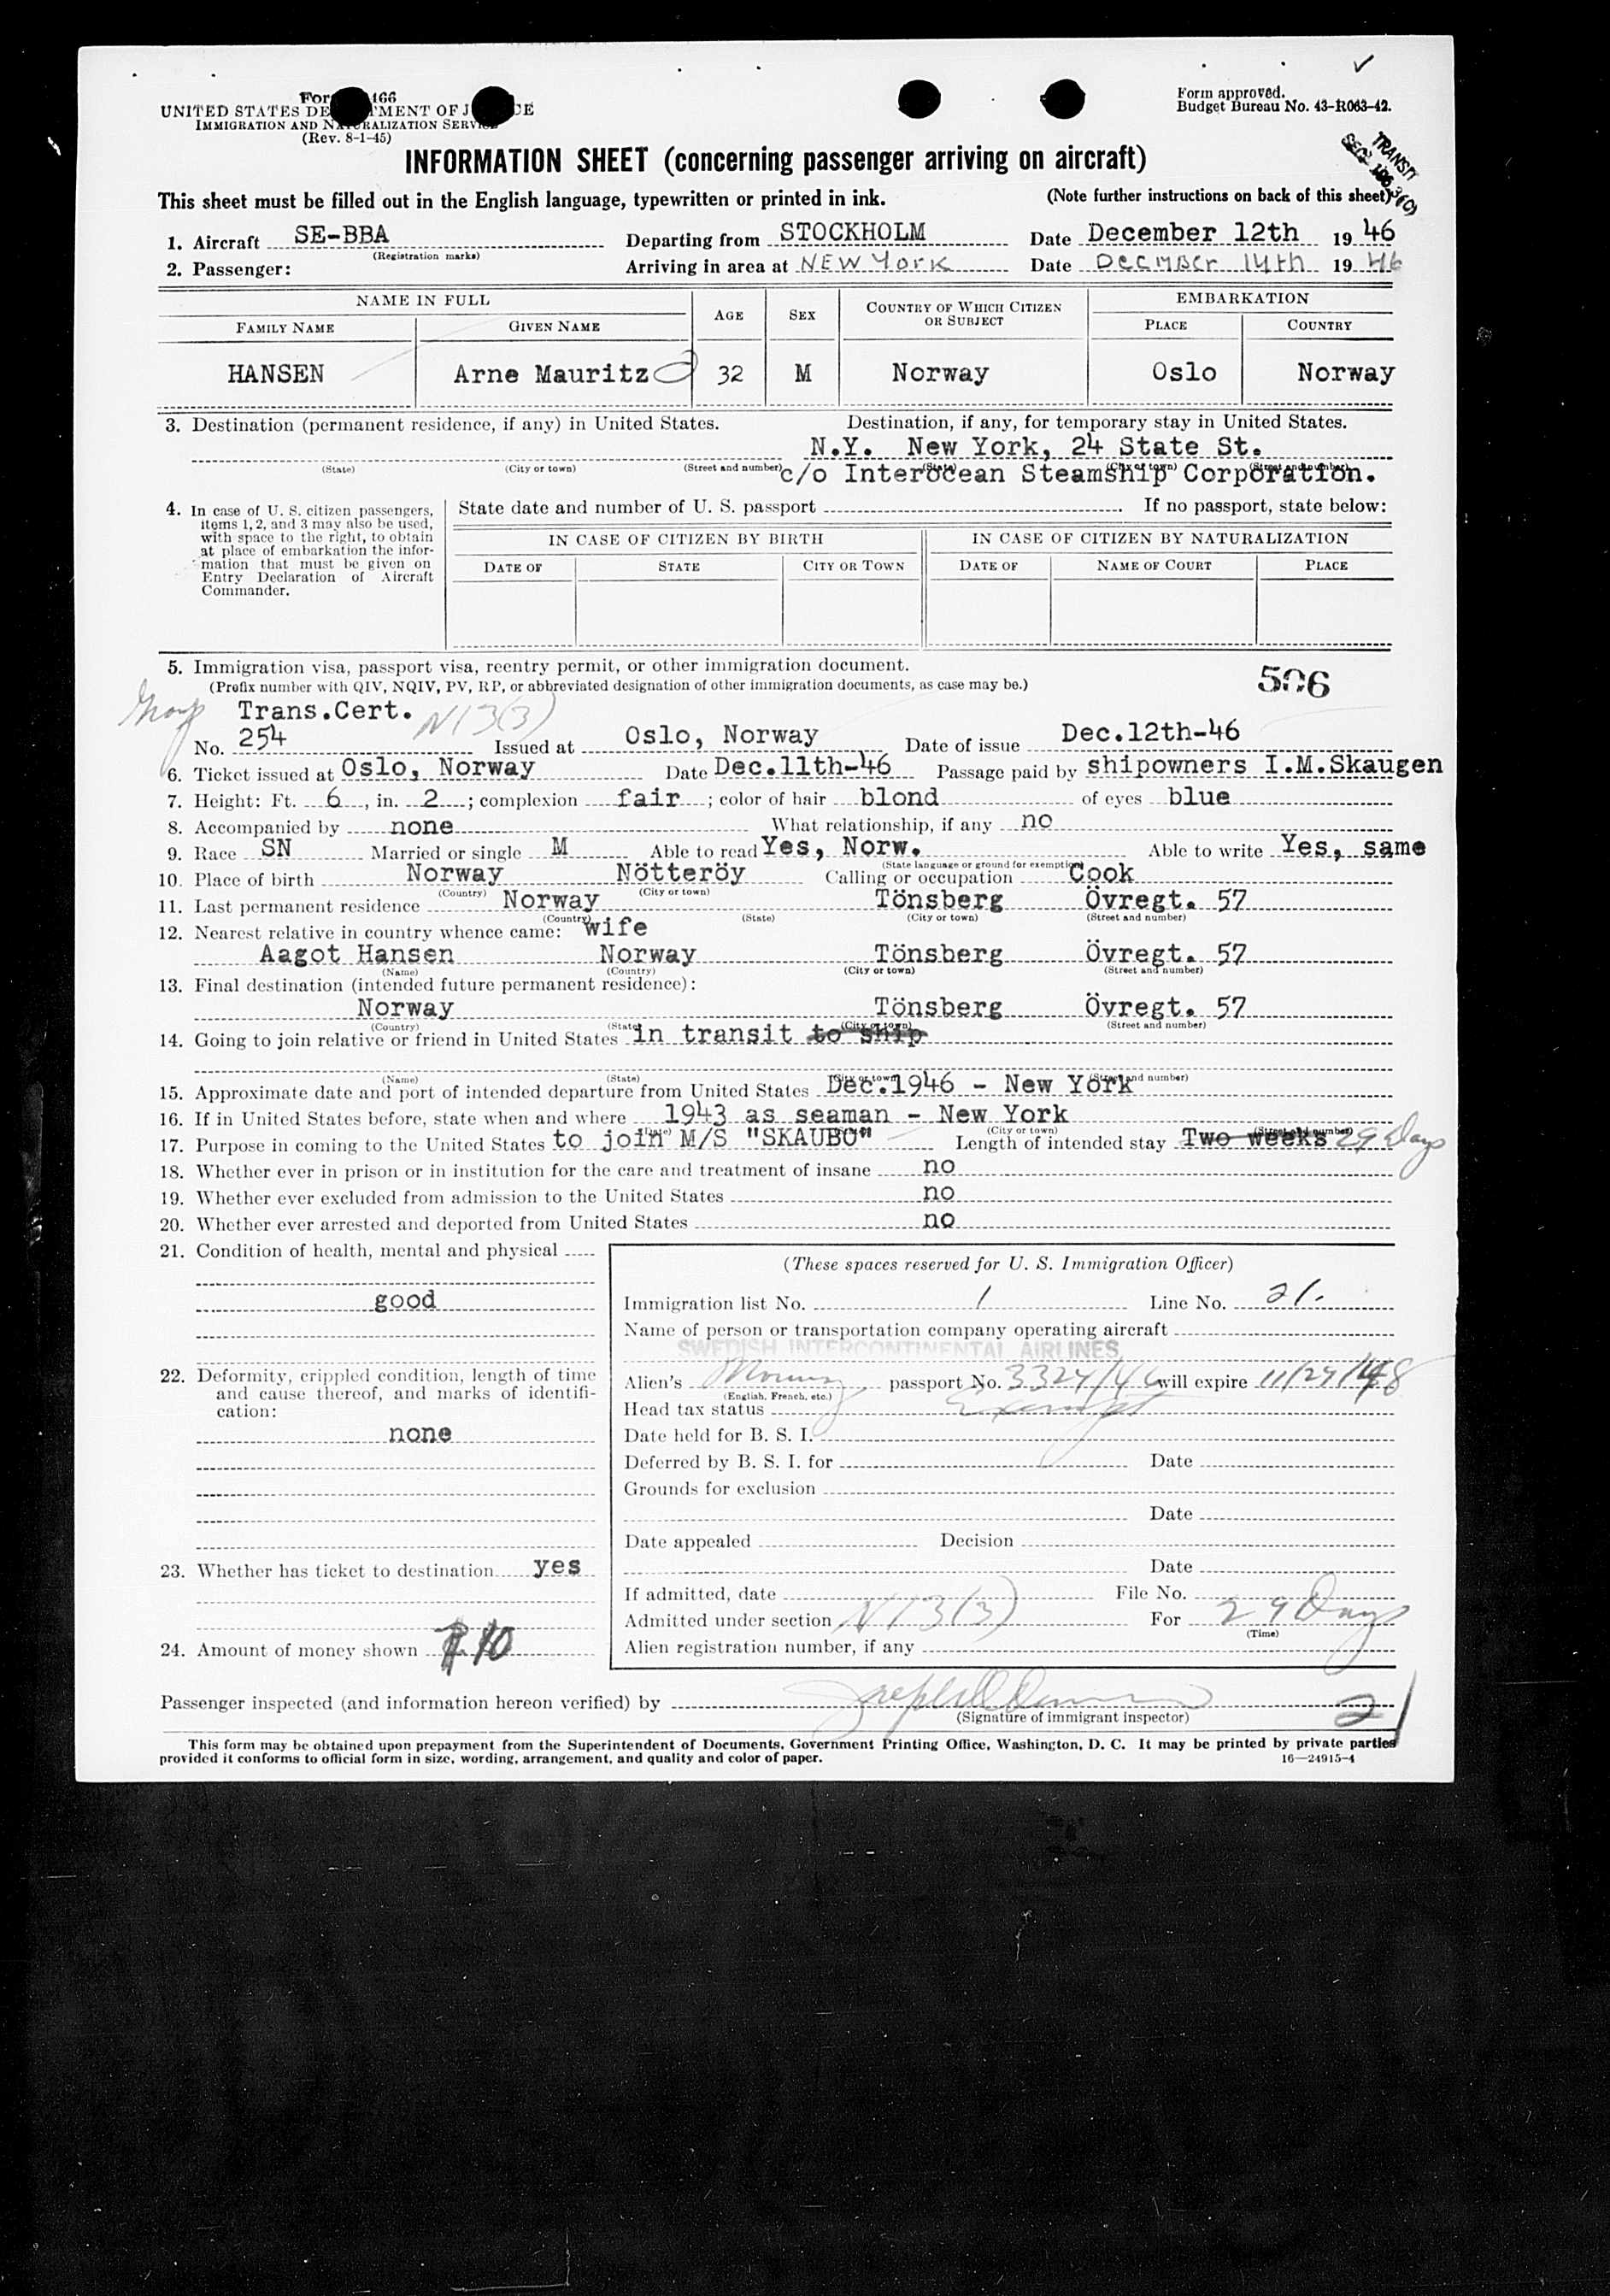 Form approved.
Budget Bureau No. 43-R063-42.
UNITED STATES DE MENT OF J CE
IMMIGRATION AND NATURALIZATION SERVICE
(Rev. 8-1-45)
TRANSIT
INFORMATION SHEET (concerning passenger arriving on aircraft)
This sheet must be filled out in the English language, typewritten or printed in ink. (Note further instructions on back of this sheet)
1. Aircraft SE-BBA Departing from STOCKHOLM Date December 12th 19 46
(Registration marks)
2. Passenger: Arriving in area at NEW YORK Date DECEMBER 14th 19 46
NAME IN FULL AGE SEX COUNTRY OF WHICH CITIZEN OR SUBJECT EMBARKATION
FAMILY NAME GIVEN NAME PLACE COUNTRY
HANSEN Arne Mauritz 32 M Norway Oslo Norway
3. Destination (permanent residence, if any) in United States. Destination, if any, for temporary stay in United States.
N.Y. New York, 24 State St.
(State) (City or town) (Street and number) c/o Interocean Steamship Corporation.
4. In case of U. S. citizen passengers, items 1, 2, and 3 may also be used, with space to the right, to obtain at place of embarkation the information that must be given on Entry Declaration of Aircraft Commander.
State date and number of U. S. passport If no passport, state below:
IN CASE OF CITIZEN BY BIRTH IN CASE OF CITIZEN BY NATURALIZATION
DATE OF STATE CITY OR TOWN DATE OF NAME OF COURT PLACE
5. Immigration visa, passport visa, reentry permit, or other immigration document.
(Prefix number with QIV, NQIV, PV, RP, or abbreviated designation of other immigration documents, as case may be.) 506
Trans.Cert. N13(3)
No. 254 Issued at Oslo, Norway Date of issue Dec.12th-46
6. Ticket issued at Oslo, Norway Date Dec.11th-46 Passage paid by shipowners I.M.Skaugen
7. Height: Ft. 6, in. 2; complexion fair; color of hair blond of eyes blue
8. Accompanied by none What relationship, if any no
9. Race SN Married or single M Able to read Yes, Norw. Able to write Yes, same
(State language or ground for exemption)
10. Place of birth Norway Nötteröy Calling or occupation Cook
(Country) (City or town)
11. Last permanent residence Norway Tönsberg Övregt. 57
(Country) (State) (City or town) (Street and number)
12. Nearest relative in country whence came: wife
Aagot Hansen Norway Tönsberg Övregt. 57
(Name) (Country) (City or town) (Street and number)
13. Final destination (intended future permanent residence):
Norway Tönsberg Övregt. 57
(Country) (State) (City or town) (Street and number)
14. Going to join relative or friend in United States in transit to ship
(Name) (State) (City or town) (Street and number)
15. Approximate date and port of intended departure from United States Dec.1946 - New York
16. If in United States before, state when and where 1943 as seaman - New York
(Date) (City or town) (Street and number)
17. Purpose in coming to the United States to join M/S "SKAUBO" Length of intended stay Two weeks 29 Days
18. Whether ever in prison or in institution for the care and treatment of insane no
19. Whether ever excluded from admission to the United States no
20. Whether ever arrested and deported from United States no
21. Condition of health, mental and physical
good
22. Deformity, crippled condition, length of time and cause thereof, and marks of identification:
none
23. Whether has ticket to destination yes
24. Amount of money shown 10
(These spaces reserved for U. S. Immigration Officer)
Immigration list No. 1 Line No. 21.
Name of person or transportation company operating aircraft
SWEDISH INTERCONTINENTAL AIRLINES
Alien's passport No. 3324/46 will expire 11/29/48
(English, French, etc.)
Head tax status Exempt
Date held for B. S. I.
Deferred by B. S. I. for Date
Grounds for exclusion
Date
Date appealed Decision
Date
If admitted, date File No.
Admitted under section N13(3) For 29 Days
(Time)
Alien registration number, if any
Passenger inspected (and information hereon verified) by
(Signature of immigrant inspector)
21
This form may be obtained upon prepayment from the Superintendent of Documents, Government Printing Office, Washington, D. C. It may be printed by private parties
provided it conforms to official form in size, wording, arrangement, and quality and color of paper. 16—24915-4